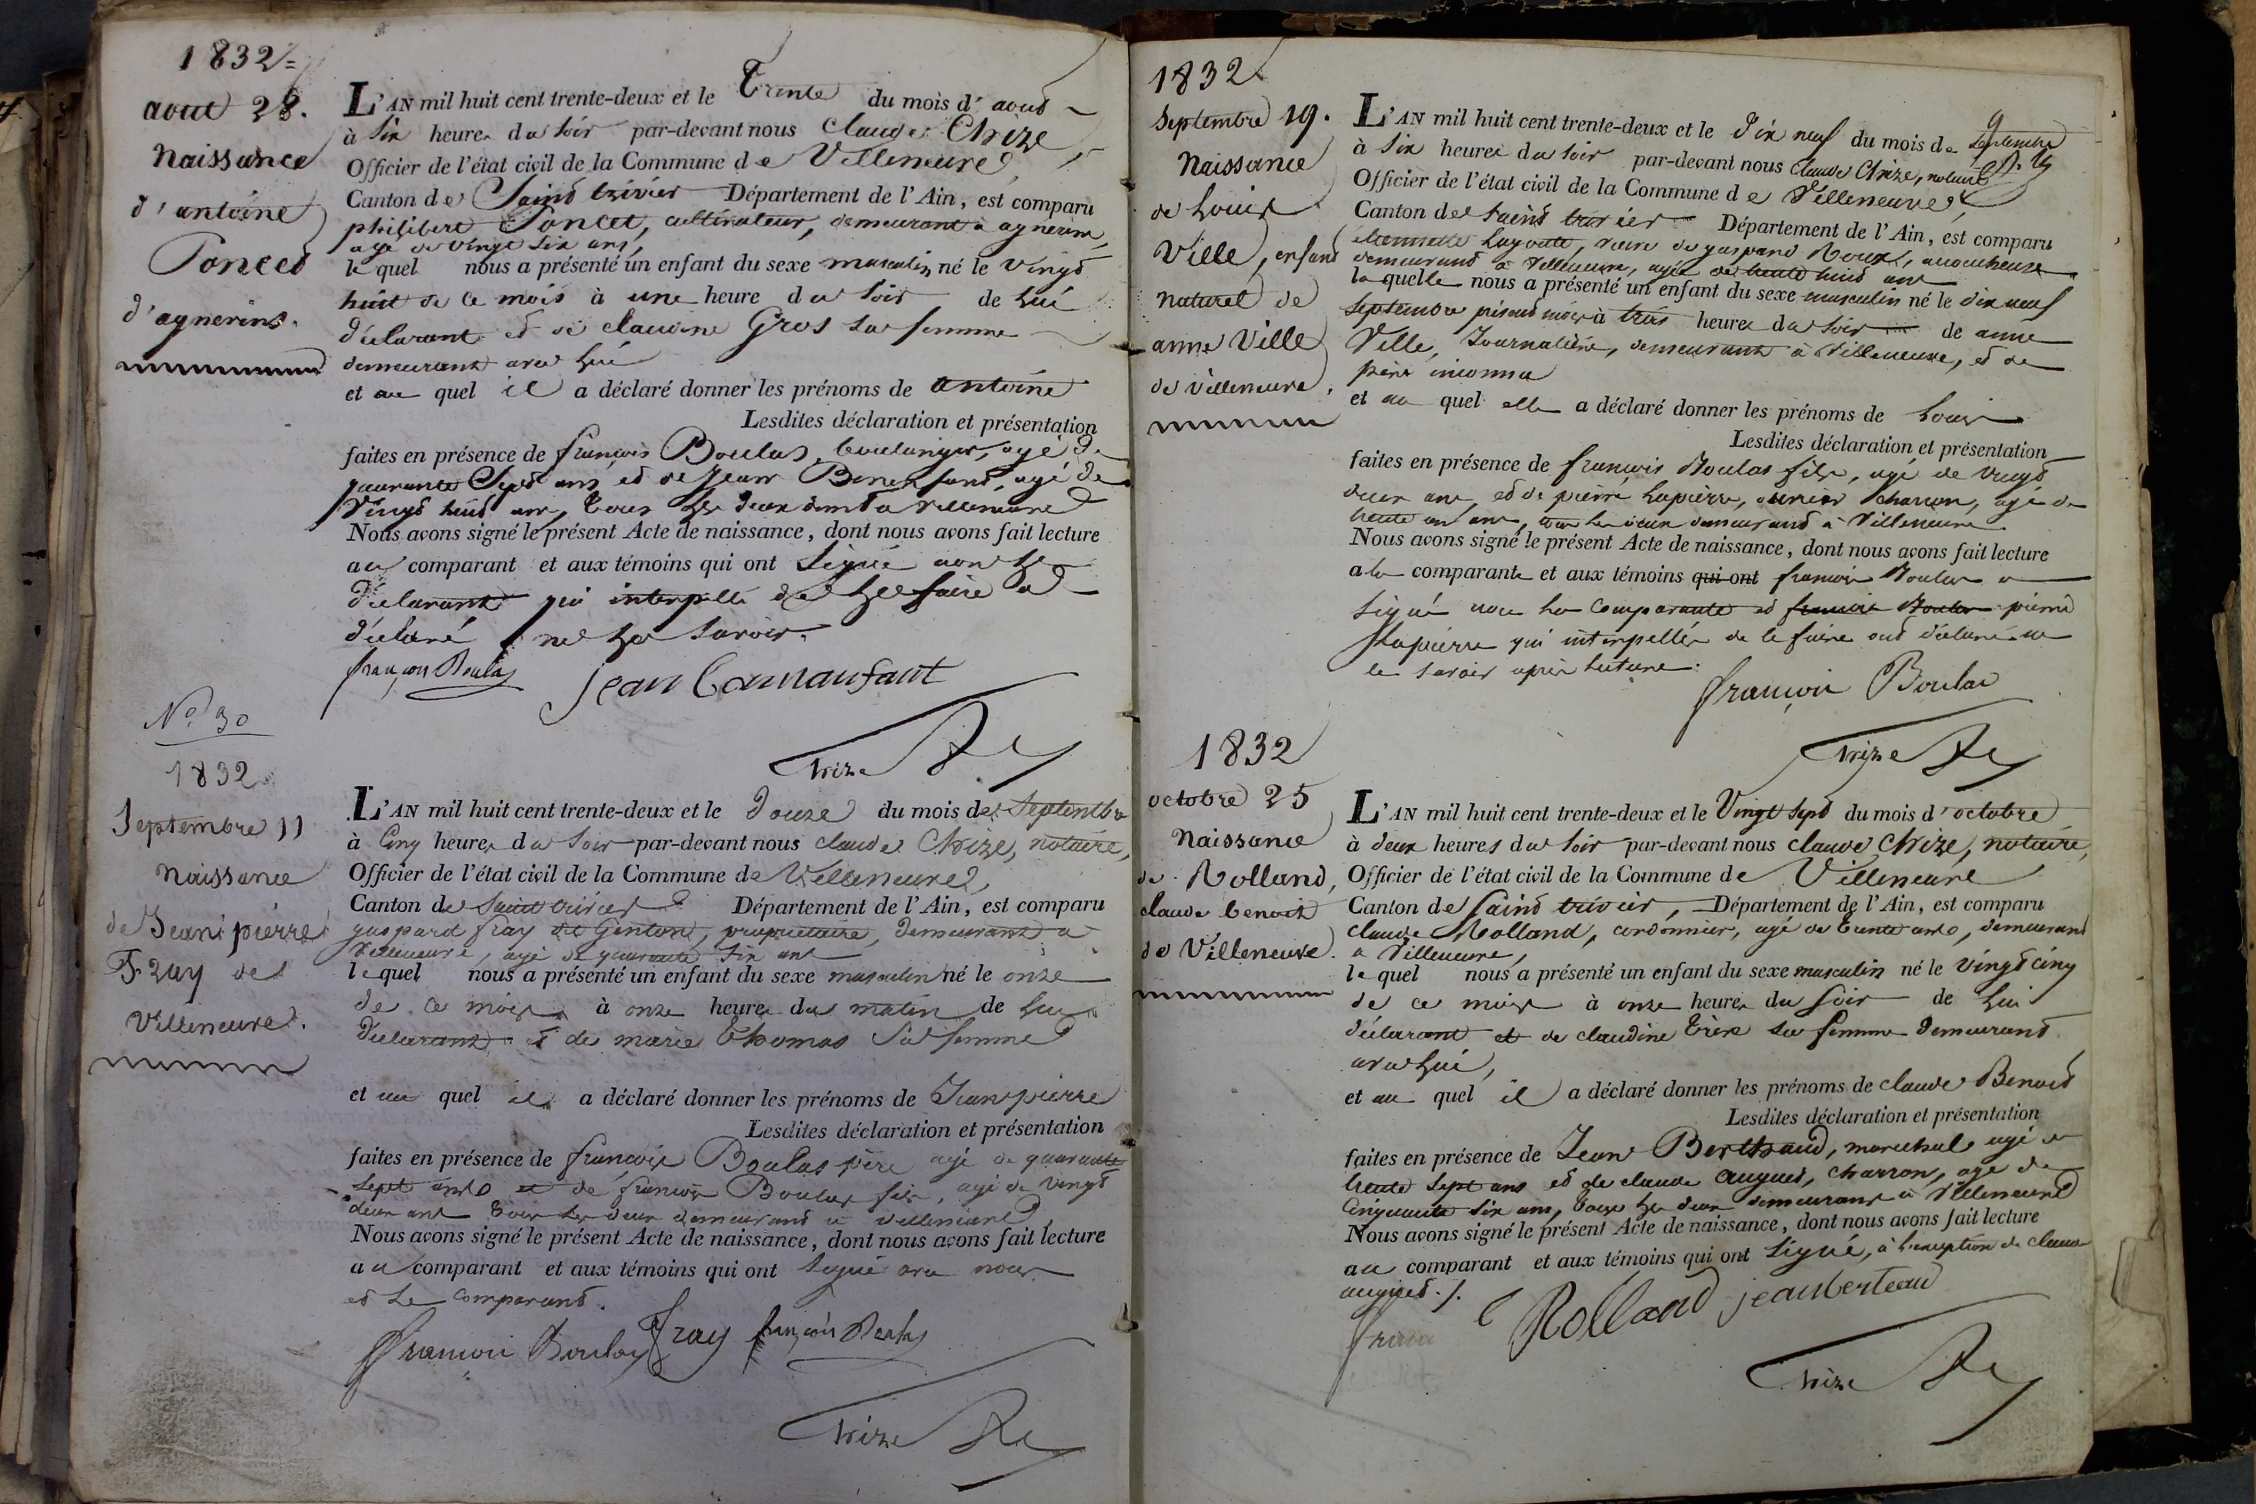 1832
aout 28.
Naissance
d'antoine
Poncet
d'agnerins.
L'AN mil huit cent trente-deux et le Trente du mois d'aout
à six heures du soir par-devant nous Claude Chize,
Officier de l'état civil de la Commune de Villeneuve,
Canton de Saint trivier Département de l'Ain, est comparu
philibert Poncet, cultivateur, demeurant à agnerins,
agé de vingt six ans,
le quel nous a présenté un enfant du sexe masculin né le vingt
huit de ce mois à une heure du soir de lui
déclarant et de claudine Gros sa femme
demeurant avec lui
et au quel il a déclaré donner les prénoms de antoine
Lesdites déclaration et présentation
faites en présence de françois Boulas, boulanger, agé de
quarante sept ans et de Jean agé de
vingt huit ans, tous les deux dem.t a villeneuve
Nous avons signé le présent Acte de naissance, dont nous avons fait lecture
au comparant et aux témoins qui ont signé non le
déclarant qui interpellé de le faire a
déclaré ne le savoir.
françois Boulas
Jean
Chize
N.o 30
1832
Septembre 11
Naissance
de Jean pierre
Fray de
Villeneuve.
L'AN mil huit cent trente-deux et le douze du mois de Septembre
à cinq heures du soir par-devant nous claude Chize, notaire,
Officier de l'état civil de la Commune de Villeneuve,
Canton de saint trivier Département de l'Ain, est comparu
gaspard fray de Genton, propriétaire, demeurant a
villeneuve, agé de quarante six ans
le quel nous a présenté un enfant du sexe masculin né le onze
de ce mois à onze heures du matin de lui
déclarant et de marie thomas sa femme
et au quel il a déclaré donner les prénoms de Jean pierre
Lesdites déclaration et présentation
faites en présence de françois Boulas père agé de quarante
sept ans et de françois Boulas fils, agé de vingt
deux ans tous les deux demeurant a villeneuve
Nous avons signé le présent Acte de naissance, dont nous avons fait lecture
au comparant et aux témoins qui ont signé avec nous
et le comparant.
françois Boulas fray françois Boulas
Chize
1832
Septembre 19.
Naissance
de Louis
Ville, enfant
naturel de
anne Ville
de villeneuve.
L'AN mil huit cent trente-deux et le dix neuf du mois de Septembre
à six heures du soir par-devant nous claude Chize, notaire
Officier de l'état civil de la Commune de Villeneuve,
Canton de saint trivier Département de l'Ain, est comparu
étiennette Lagoutte, veuve de gaspard Roux, accoucheuse
demeurant à villeneuve, agée de trente huit ans
la quelle nous a présenté un enfant du sexe masculin né le dix neuf
septembre présent mois à trois heures du soir de anne
Ville, Journalière, demeurant à villeneuve, et de
père inconnu
et au quel elle a déclaré donner les prénoms de Louis
Lesdites déclaration et présentation
faites en présence de françois Boulas fils, agé de vingt
deux ans, et de pierre Lapierre, ouvrier charron, agé de
trente un ans, tous les deux demeurant à villeneuve
Nous avons signé le présent Acte de naissance, dont nous avons fait lecture
a la comparante et aux témoins qui ont françois Boulas a
signé non la comparante et françois Boulas pierre
Lapierre qui interpellés de le faire ont déclaré ne
le savoir après lecture.
françois Boulas
Chize
1832
octobre 25
Naissance
de Rolland,
claude benoit
de Villeneuve.
L'AN mil huit cent trente-deux et le Vingt sept du mois d'octobre
à deux heures du soir par-devant nous claude Chize, notaire,
Officier de l'état civil de la Commune de Villeneuve
Canton de saint trivier, Département de l'Ain, est comparu
claude Rolland, cordonnier, agé de trente ans, demeurant
a Villeneuve,
le quel nous a présenté un enfant du sexe masculin né le vingt cinq
de ce mois à onze heures du soir de lui
déclarant et de claudine sa femme demeurant
avec lui,
et au quel il a déclaré donner les prénoms de claude Benoit
Lesdites déclaration et présentation
faites en présence de Jean Berthaud, marechal agé de
trente sept ans et de claude auguet, charron, agé de
cinquante six ans, tous les deux demeurant a Villeneuve
Nous avons signé le présent Acte de naissance, dont nous avons fait lecture
au comparant et aux témoins qui ont signé, à l'exception de claude
auguet ./.
C Rolland jean berteau
Chize